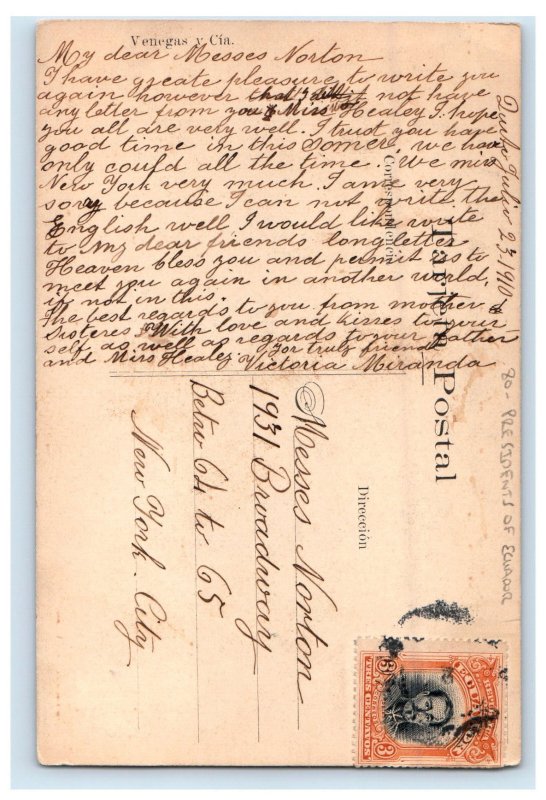 Venegas y Cía.
My dear Messes Norton
I have greate pleasure to write you
again however not have
any letter from you & Miss Healey I hope
you all are very well. I trust you have
good time in this somer, we have
only could all the time. We miss
New York very much. I ame very
sory because I can not write the
English well I would like write
to my dear friends long letter
Heaven bless you and permit us to
meet you again in another world,
if not in this.
The best regards to you from mother &
sisteres With love and kisses to your
self as well as regards to your father
and Miss Healey Yor truly friend
Victoria Miranda
Julio 23-1910-
Correspondencia
Tarjeta Postal
Dirección
Messes Norton
1931 Broadway
Betw 64 tw 65
New York. City
80- PRESIDENTS OF ECUADOR
REPUBLICA
ECUADOR
TRES CENTAVOS
3
3